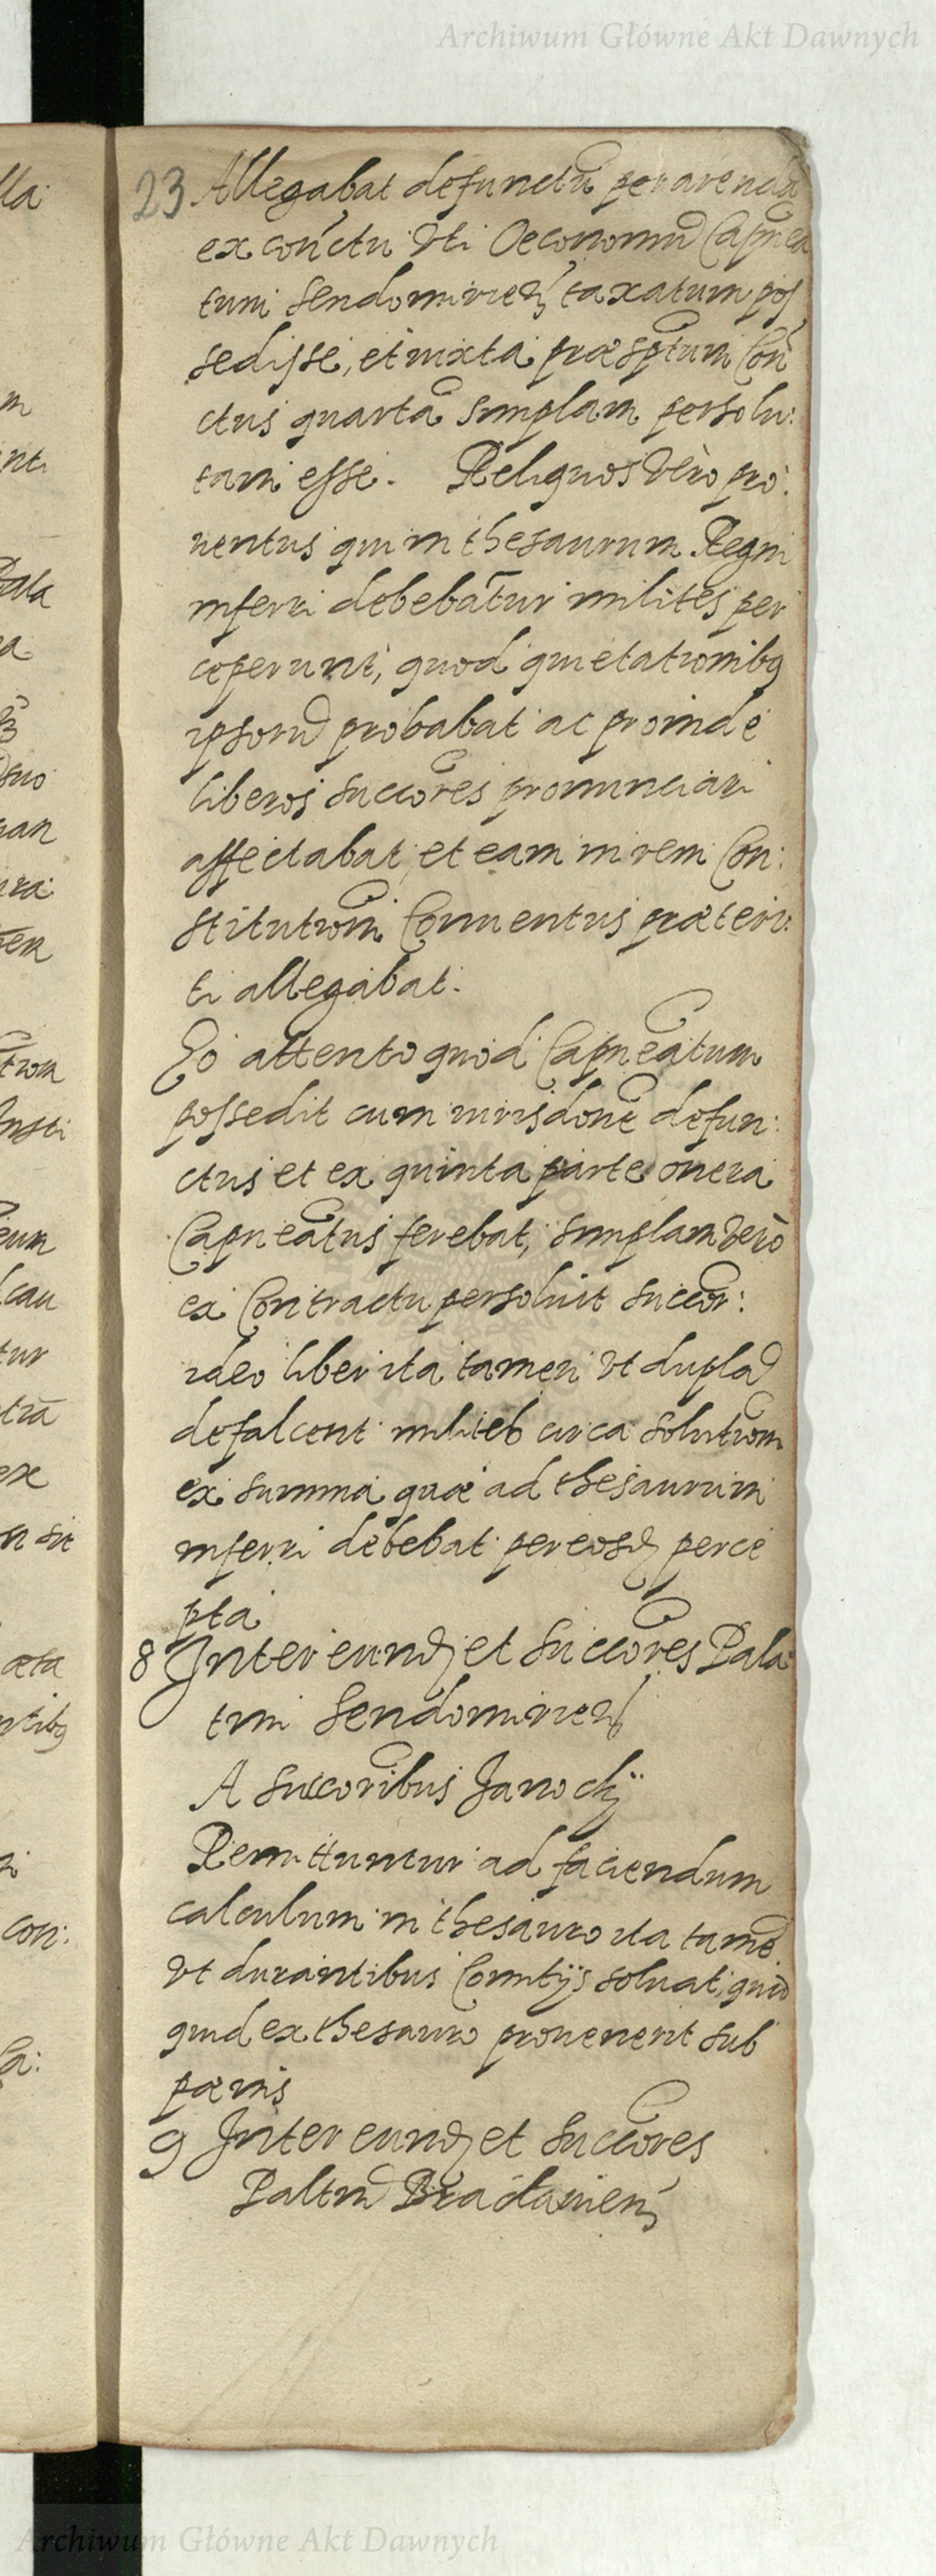 Archiwum Główne Akt Dawnych
23 Allegabat defunctū per arendā
ex conctu Vti Oeconomū Capnea
tum Sendomirien̄ taxatum pos
sedisse, et iuxta præsptum Con
ctus quartā simplam persolu:
tam esse. Reliquos Vero pro:
uentus qui in thesaurum Regni
inferri debebātur milites per
ceperunt, quod quietationibq
ipsorū probabat ac proinde
liberos succores pronunciari
affectabat, et eam in rem Con:
stitutiom Conuentus præteri:
ti allegabat.
Eo attento quod Capneatum
possedit cum iurisdone defun:
ctus et ex quinta parte onera
Capneatus ferebat, simplam Vero
ex Contractu persoluit succor:
ideo liber ita tamen vt duplā
defalcent militeb circa solutiom
ex summa quæ ad thesaurum
inferri debebat per eosd perce
pta
8 Inter eund et succores Pala
tini Sendomirien
A succoribus Janockÿ
Remittuntur ad faciendum
calculum in thesauro ita tamē
vt durantibus Comitÿs soluat, quid
quid ex thesauro prouenerit sub
pœnis
9 Inter eund et succores
Paltin Braclauien
Archiwum Główne Akt Dawnych